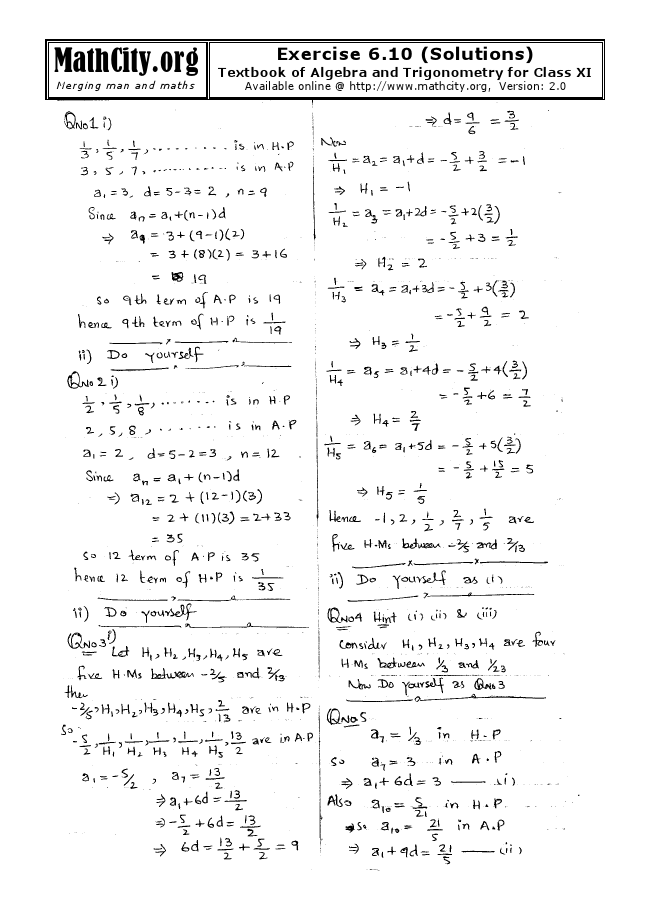 MathCity.org
Merging man and maths
Exercise 6.10 (Solutions)
Textbook of Algebra and Trigonometry for Class XI
Available online @ http://www.mathcity.org, Version: 2.0
QNo1 i)
1/3, 1/5, 1/7, ......... is in H.P
3, 5, 7, ............. is in A.P
a₁=3, d=5-3=2, n=9
Since aₙ=a₁+(n-1)d
⇒ a₉ = 3+(9-1)(2)
= 3+(8)(2) = 3+16
= 19
So 9th term of A.P is 19
hence 9th term of H.P is 1/19
ii) Do yourself
QNo2 i)
1/2, 1/5, 1/8, ........ is in H.P
2, 5, 8, ........ is in A.P
a₁=2, d=5-2=3, n=12
Since aₙ = a₁+(n-1)d
⇒ a₁₂ = 2 + (12-1)(3)
= 2+(11)(3) = 2+33
= 35
So 12 term of A.P is 35
hence 12 term of H.P is 1/35
ii) Do yourself
QNo3 i)
Let H₁, H₂, H₃, H₄, H₅ are
five H.Ms between -2/5 and 2/13
then
-2/5, H₁, H₂, H₃, H₄, H₅, 2/13 are in H.P
So
-5/2, 1/H₁, 1/H₂, 1/H₃, 1/H₄, 1/H₅, 13/2 are in A.P
a₁=-5/2, a₇ = 13/2
⇒ a₁+6d = 13/2
⇒ -5/2 + 6d = 13/2
⇒ 6d = 13/2 + 5/2 = 9
⇒ d = 9/6 = 3/2
Now
1/H₁ = a₂ = a₁+d = -5/2 + 3/2 = -1
⇒ H₁ = -1
1/H₂ = a₃ = a₁+2d = -5/2 + 2(3/2)
= -5/2 + 3 = 1/2
⇒ H₂ = 2
1/H₃ = a₄ = a₁+3d = -5/2 + 3(3/2)
= -5/2 + 9/2 = 2
⇒ H₃ = 1/2
1/H₄ = a₅ = a₁+4d = -5/2 + 4(3/2)
= -5/2 + 6 = 7/2
⇒ H₄ = 2/7
1/H₅ = a₆ = a₁+5d = -5/2 + 5(3/2)
= -5/2 + 15/2 = 5
⇒ H₅ = 1/5
Hence -1, 2, 1/2, 2/7, 1/5 are
five H.Ms between -2/5 and 2/13
ii) Do yourself as (i)
QNo4 Hint (i) (ii) & (iii)
Consider H₁, H₂, H₃, H₄ are four
H.Ms between 1/3 and 1/23
Now Do yourself as QNo3
QNo5
a₇ = 1/3 in H.P
So a₇ = 3 in A.P
⇒ a₁+6d = 3 —— (i)
Also a₁₀ = 5/21 in H.P
So a₁₀ = 21/5 in A.P
⇒ a₁+9d = 21/5 —— (ii)